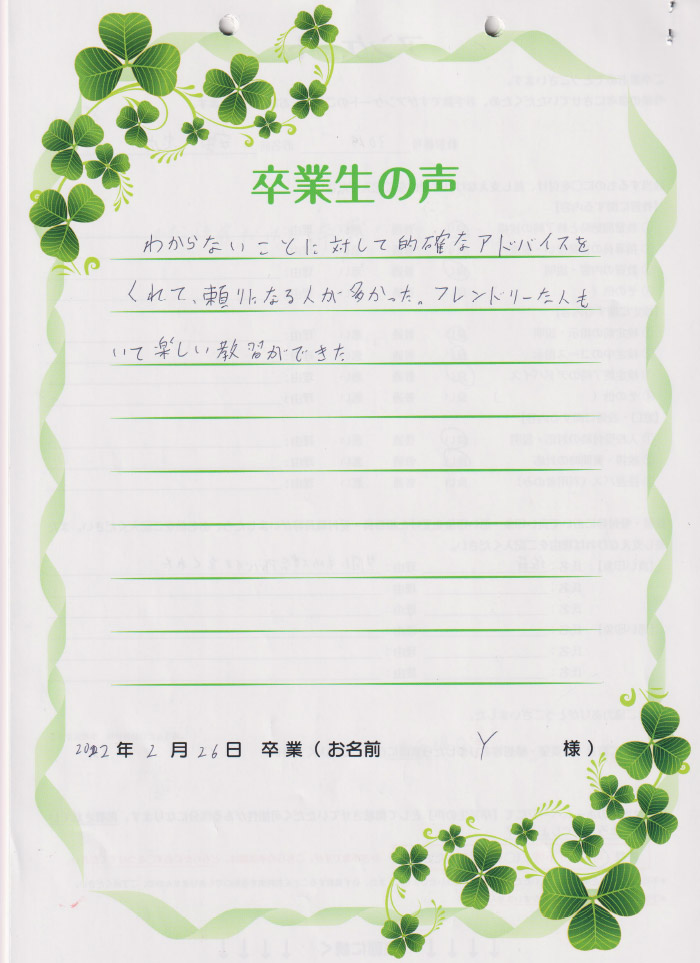 卒業生の声
わからないことに対して的確なアドバイスを
くれて、頼りになる人が多かった。フレンドリーな人も
いて楽しい教習ができた
2022年 2月 26日 卒業(お名前 Y 様)